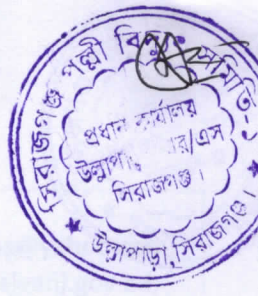 সিরাজগঞ্জ পল্লী বিদ্যুৎ সমিতি-
প্রধান কার্যালয়
উল্লাপাড়া আর/এস
সিরাজগঞ্জ।
উল্লাপাড়া, সিরাজগঞ্জ।